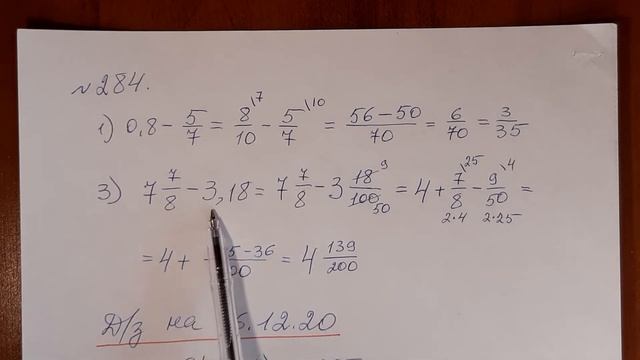 №284.
1) 0,8 - 5/7 = 8/10 \7 - 5/7 \10 = 56-50/70 = 6/70 = 3/35
3) 7 7/8 - 3,18 = 7 7/8 - 3 18/100 9 50 = 4 + 7/8 \25 - 9/50 \4 =
2·4 2·25
= 4 + 5-36/00 = 4 139/200
Д/з на 6.12.20